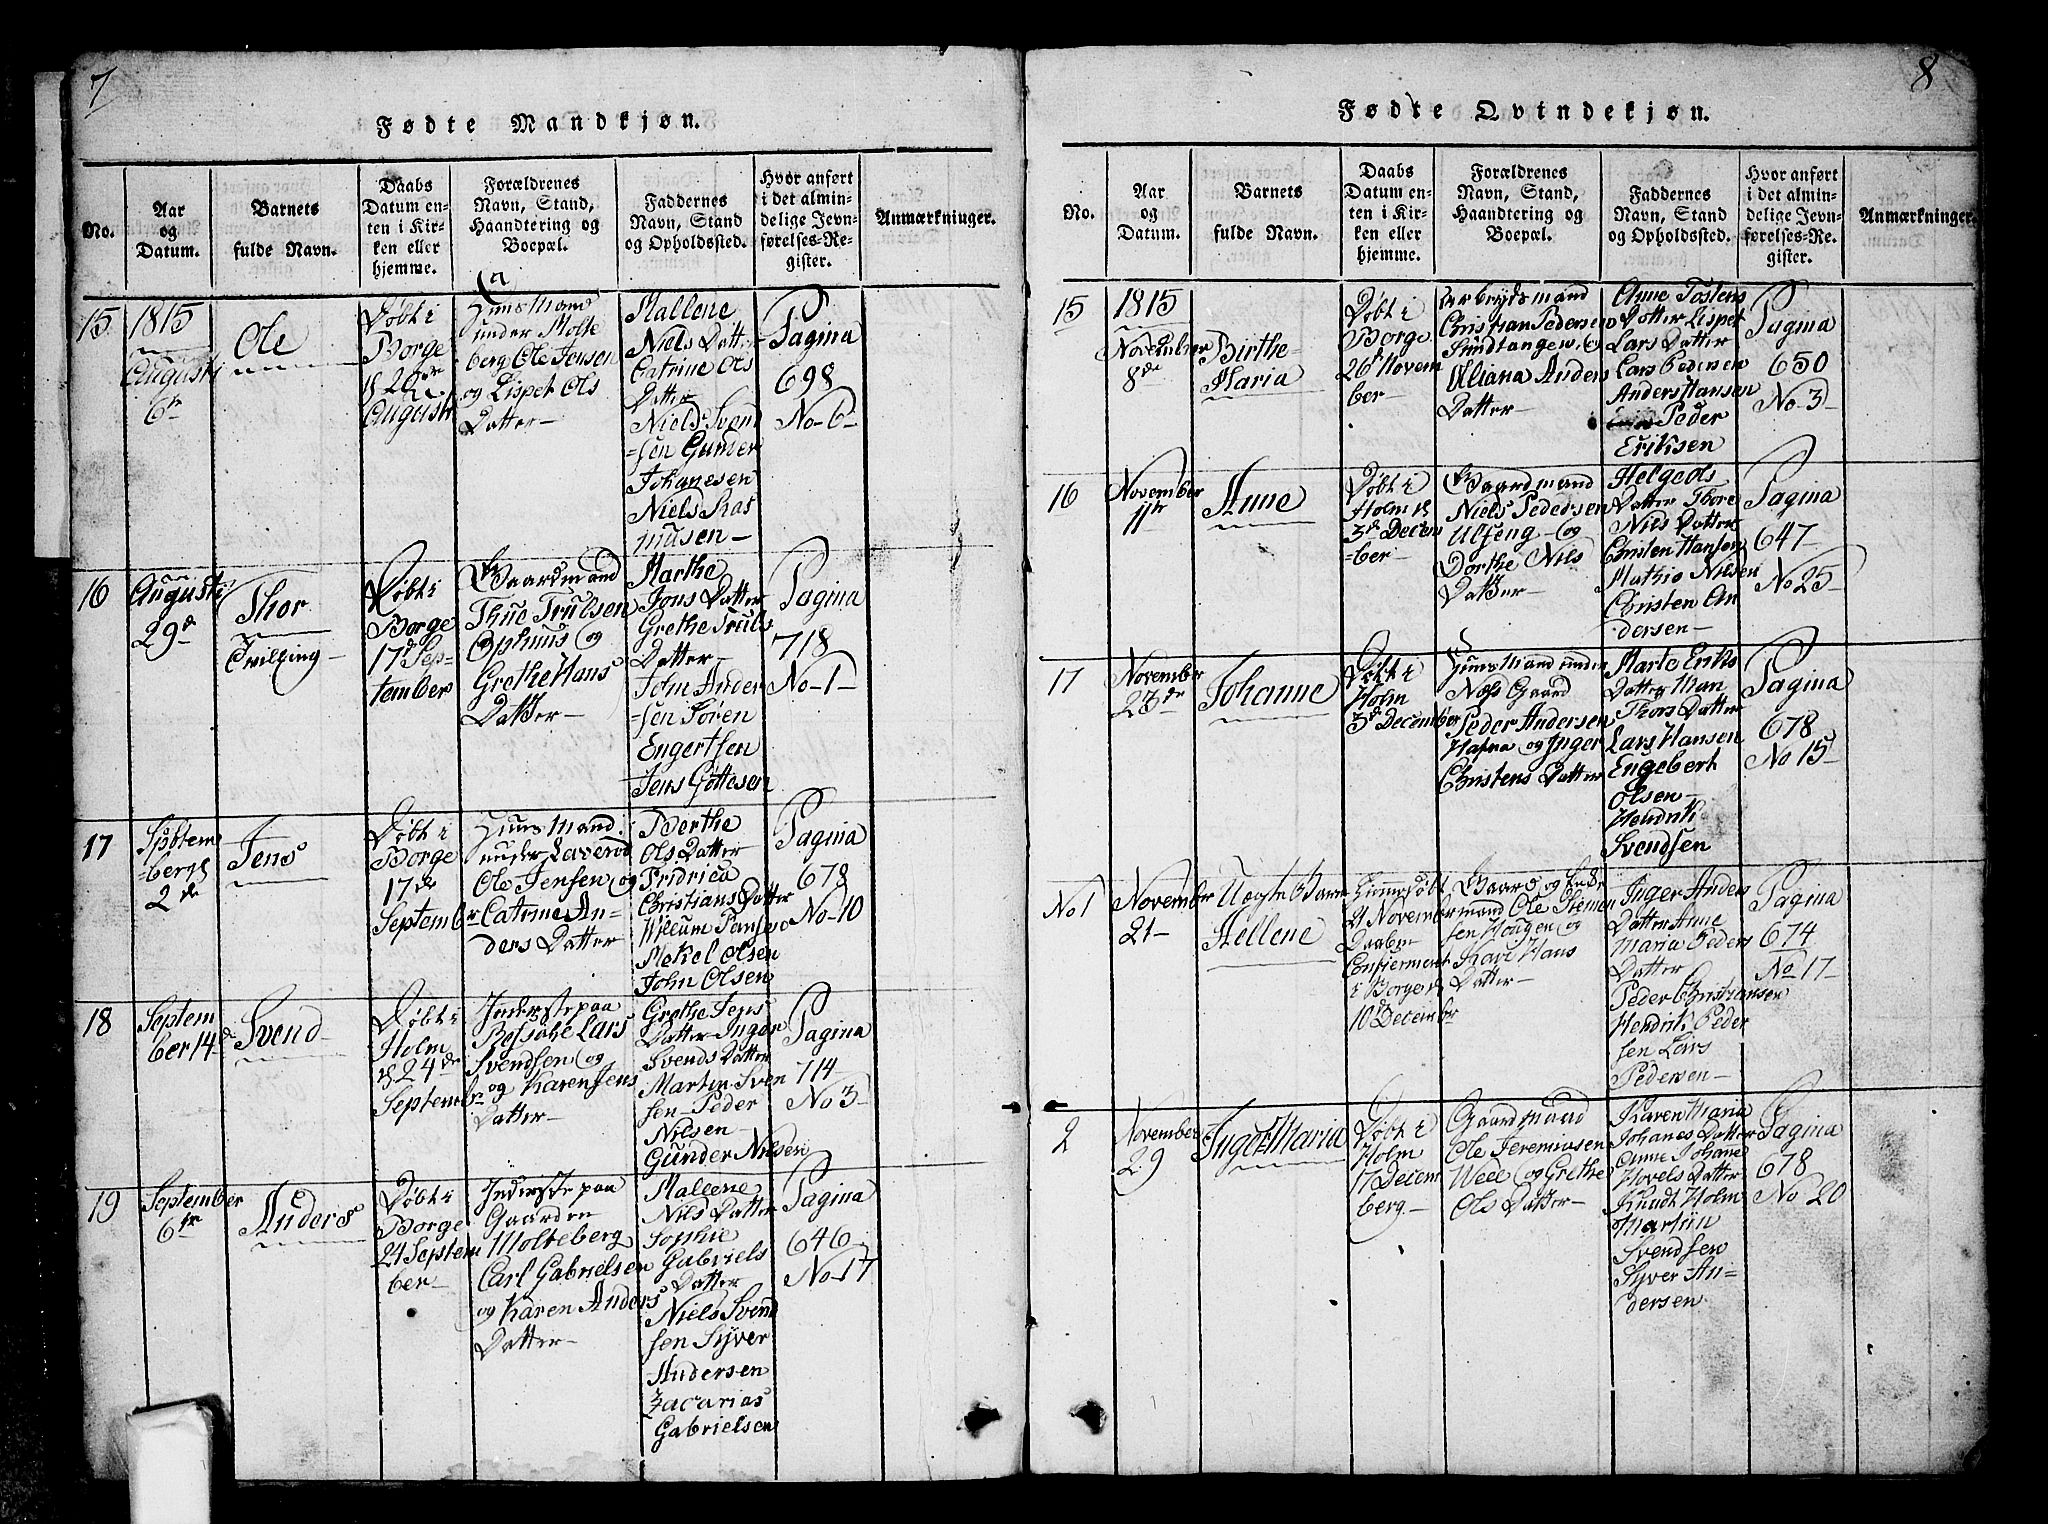 7
Fødte Mandkjøn.
No.
Aar
og
Datum.
Barnets
fulde Navn.
Daabs
Datum en-
ten i Kir-
ken eller
hjemme.
Forældrenes
Navn, Stand,
Haandtering og
Boepæl.
Faddernes
Navn, Stand
og Opholdssted.
Hvor anført
i det almin-
delige Jevn-
førelses-Re-
gister.
Anmærkninger.
15
1815
Augusti
6te
Ole
Døbt i
Borge
d 20de
August
Huusmand
under Molte
berg Ole Jensen
og Lispet Ols
Datter
Mallene
Niels Datter
Catrine Ols
Datter
Niels Svend
=sen Gunder
Johanesen
Niels Ras
musen
Pagina
698
No 6
16
Augusti
29de
Thor
Tvilling
Døbt i
Borge
17d Sep-
tember
Gaardmand
Thue Trulsen
Ophuus og
Grethe Hans
Datter
Marthe
Jons Datter
Grethe Truls
Datter
John Ander
=sen Sören
Engertsen
Jens Gøttesen
Pagina
718
No 1
17
September
2de
Jens
Døbt i
Borge
17de
September
Huusmand
under Laverød
Ole Jensen og
Catrine An-
ders Datter
Berthe
Ols Datter
Fridrica
Christians Datter
Willum
Mekel Olsen
John Olsen
Pagina
678
No 10
18
Septem
ber 14de
Svend
Døbt i
Holm
d 24de
Septembr
Inderste paa
Lars
Svendsen og
og Karen Jens
Datter
Grethe Jens
Datter Inger
Svends Datter
Martin Sven
sen Peder
Nilsen
Gunder Nilsen
Pagina
714
No 3
19
September
6te
Anders
Døbt i
Borge
24 Septem
ber
Inderste paa
Gaarden
Molteberg
Carl Gabrielsen
og Karen Anders
Datter
Mallene
Nils Datter
Sophie
Gabriels
Datter
Niels Svend
sen Syver
Andersen
Zacarias
Gabrielsen
Pagina
646
No 17
8
Fødte Qvindekjøn.
No.
Aar
og
Datum.
Barnets
fulde Navn.
Daabs
Datum en-
ten i Kir-
ken eller
hjemme.
Forældrenes
Navn, Stand,
Haandtering og
Boepæl.
Faddernes
Navn, Stand
og Opholdssted.
Hvor anført
i det almin-
delige Jevn-
førelses-Re-
gister.
Anmærkninger.
15
1815
November
8de
Birthe
Maria
Døbt i
Borge
26d Novem
ber
Arbeydsmand
Christian Pedersen
Sundtangen, og
Uliana Anders
Datter
Anne Tostens
Datter Lispet
Lars Datter
Lars Pedersen
Anders Hansen
Peder
Eriksen
Pagina
650
No 3
16
November
11te
Anne
Døbt i
Holm d
3d Decem
=ber
Gaardmand
Niels Pedersen
Ulfeng og
Dorthe Nils
Datter
Helge Ols
Datter Thore
Nils Datter
Christen Hansen
Mathis Nilsen
Christen An
dersen
Pagina
647
No 25
17
November
23de
Johanne
Døbt i
Holm
3d December
Huusmand under
Næs Gaard
Peder Andersen
Hafna og Inger
Christens Datter
Marte Eriks
Datter Mari
Thors Datter
Lars Hansen
Engebert
Olsen
Hendrik
Svendsen
Pagina
678
No 15
No 1
November
21
Uegte Barn
Hellene
Hiemedøbt
21 November
Daaben
Confierment
i Borge d
10 December
Gaard og
mand Ole
sen Hougen og
Kari Hans
Datter
Inger Anders
Datter Anne
Maria Peders
Datter
Peder Christiansen
Hendrik Peder
sen Lars
Pedersen
Pagina
674
No 17
2
November
29
Inger Maria
Døbt i
Holm
17 Decem
berg
Gaardmand
Ole Jeremiasen
Wede og Grethe
Ols Datter
Karen Maria
Johanes Datter
Anne Johane
Hovels Datter
Knudt Holm
Martiin
Svendsen
Syver An=
dersen
Pagina
678
No 20